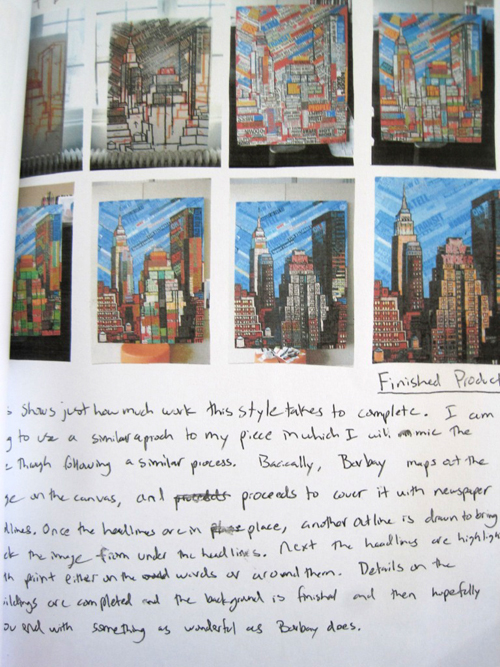 Finished Product
s shows just how much work this style takes to complete. I am
g to use a similar aproch to my piece in which I will mimic the
e though following a similar process. Basically, Borbay maps out the
ge on the canvas, and proceeds to cover it with newspaper
dlines. Once the headlines are in place, another outline is drawn to bring
ck the image from under the headlines. Next the headlines are highlighte
th paint either on the words or around them. Details on the
uildings are completed and the background is finished and then hopefully
ou end with something as wonderful as Borbay does.